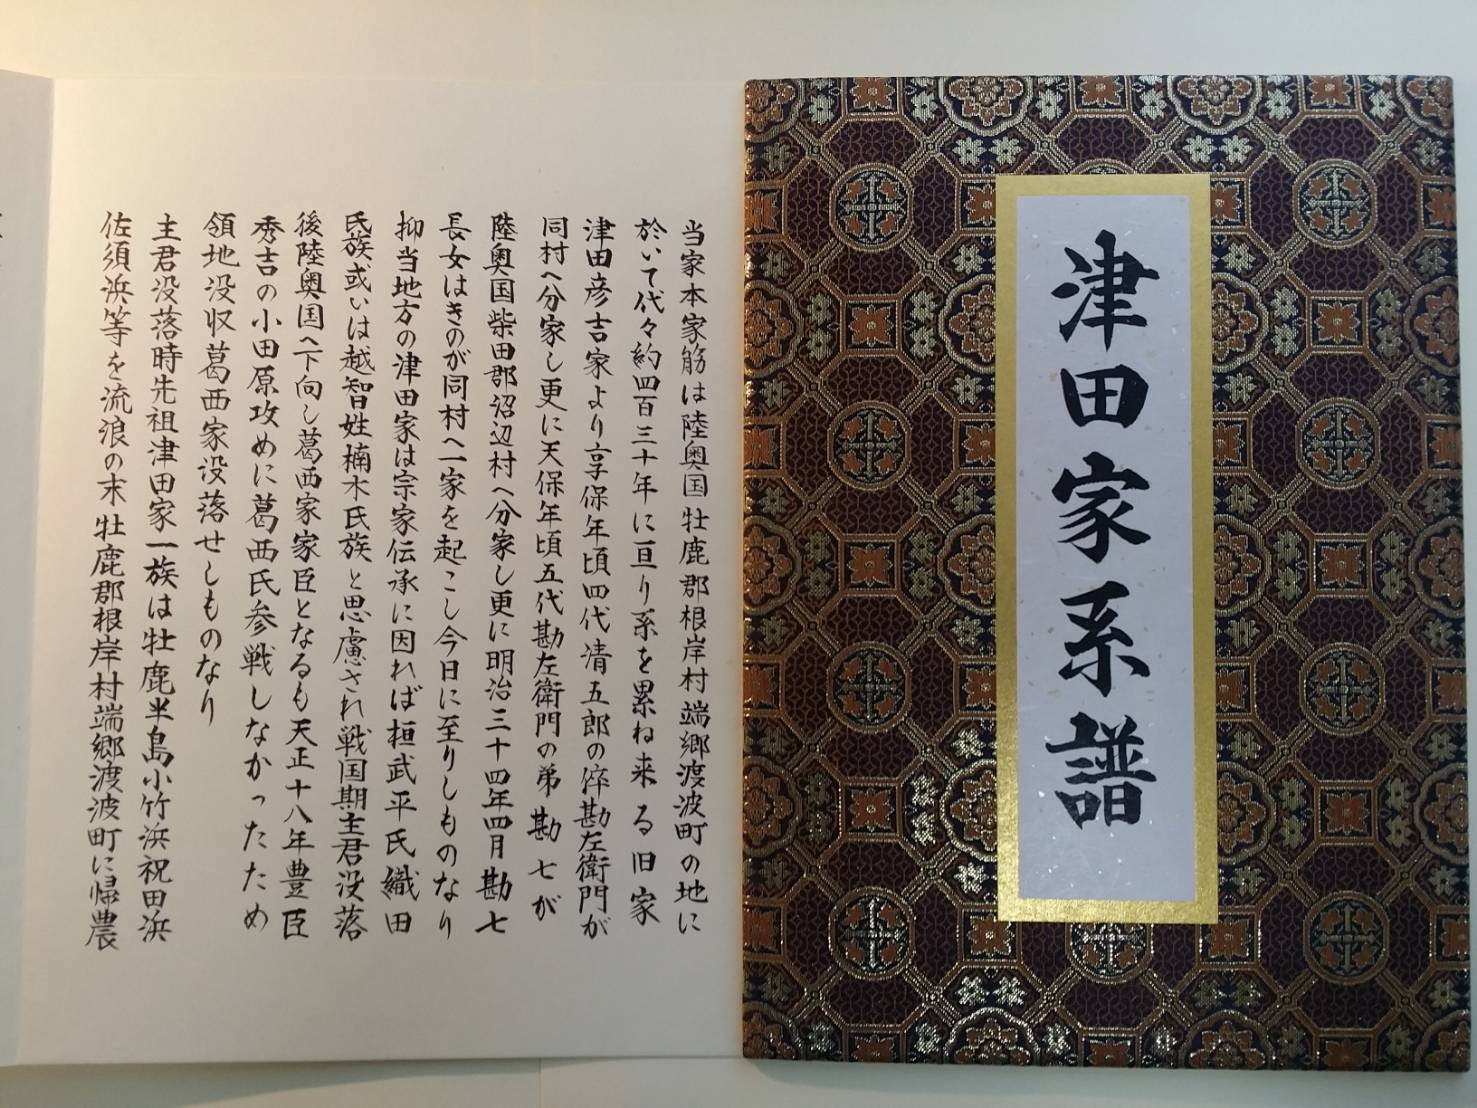 津田家系譜
当家本家筋は陸奥国牡鹿郡根岸村端郷渡波町の地に
於いて代々約四百三十年に亘り系を累ね来る旧家
津田彦吉家より享保年頃四代清五郎の倅勘左衛門が
同村へ分家し更に天保年頃五代勘左衛門の弟勘七が
陸奥国柴田郡沼辺村へ分家し更に明治三十四年四月勘七
長女はきのが同村へ一家を起こし今日に至りしものなり
抑当地方の津田家は宗家伝承に因れば桓武平氏織田
氏族或いは越智姓楠木氏族と思慮され戦国期主君没落
後陸奥国へ下向し葛西家家臣となるも天正十八年豊臣
秀吉の小田原攻めに葛西氏参戦しなかったため
領地没収葛西家没落せしものなり
主君没落時先祖津田家一族は牡鹿半島小竹浜祝田浜
佐須浜等を流浪の末牡鹿郡根岸村端郷渡波町に帰農